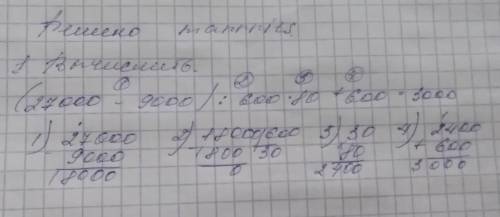 Решено mattries
1 Вычислить.
① ② ③ ④
(27000 - 9000) : 600 · 80 + 600 = 3000
1) 27000 2) 18000 600 3) 30 4) 2400
9000 1800 30 80 + 600
18000 0 2400 3000